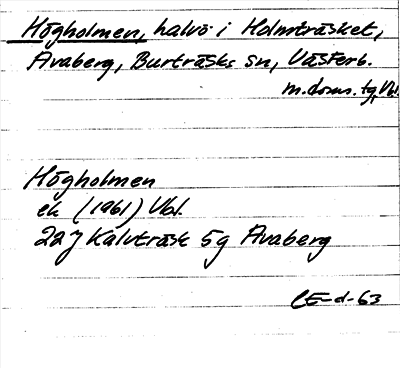 Högholmen, halvö i Holmträsket,
Avaberg, Burträsks sn, Västerb.
m. doms. tg, Vbl.
Högholmen
ek (1961) Vbl.
22J Kalvträsk 5g Avaberg
CE-d-63